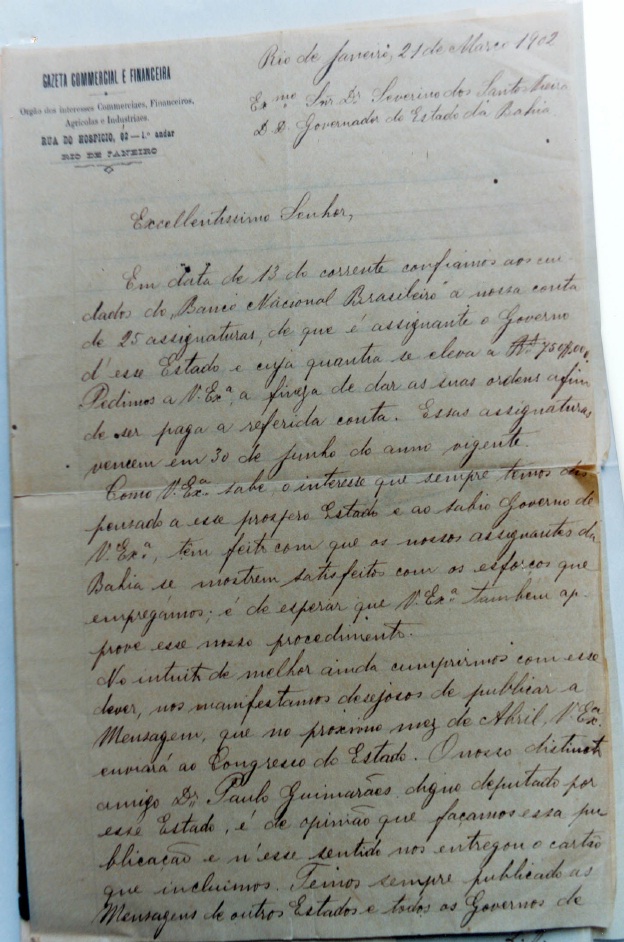 GAZETA COMMERCIAL E FINANCEIRA
Orgão dos interesses Commerciaes, Financeiros,
Agricolas e Industriaes.
RUA DO HOSPICIO, 62 — 1.º andar
RIO DE JANEIRO
Rio de Janeiro, 21 de Março 1902
Ex.mo Snr. Dr. Severino dos Santos Vieira
D. D. Governador do Estado da Bahia
Excellentissimo Senhor,
Em data de 13 do corrente confiamos aos cui-
dados do "Banco Nacional Brasileiro" a nossa conta
de 25 assignaturas, de que é assignante o Governo
d'esse Estado e cuja quantia se eleva a Rs. 750$000.
Pedimos a V. Ex.ª a fineza de dar as suas ordens afim
de ser paga a referida conta. Essas assignaturas
vencem em 30 de Junho do anno vigente.
Como V. Ex.ª sabe, o interesse que sempre temos dis-
pensado a esse prospero Estado e ao sabio Governo de
V. Ex.ª, tem feito com que os nossos assignantes da
Bahia se mostrem satisfeitos com os esforços que
empregamos; é de esperar que V. Ex.ª tambem ap-
prove esse nosso procedimento.
No intuito de melhor ainda cumprirmos com esse
dever, nos manifestamos desejosos de publicar a
Mensagem, que no proximo mez de Abril, V. Ex.ª
enviará ao Congresso do Estado. O nosso distincto
amigo Dr. Paulo Guimarães, digno deputado por
esse Estado, é de opinião que façamos essa pu-
blicação e n'esse sentido nos entregou o cartão
que incluimos. Temos sempre publicado as
Mensagens de outros Estados e todos os Governos de